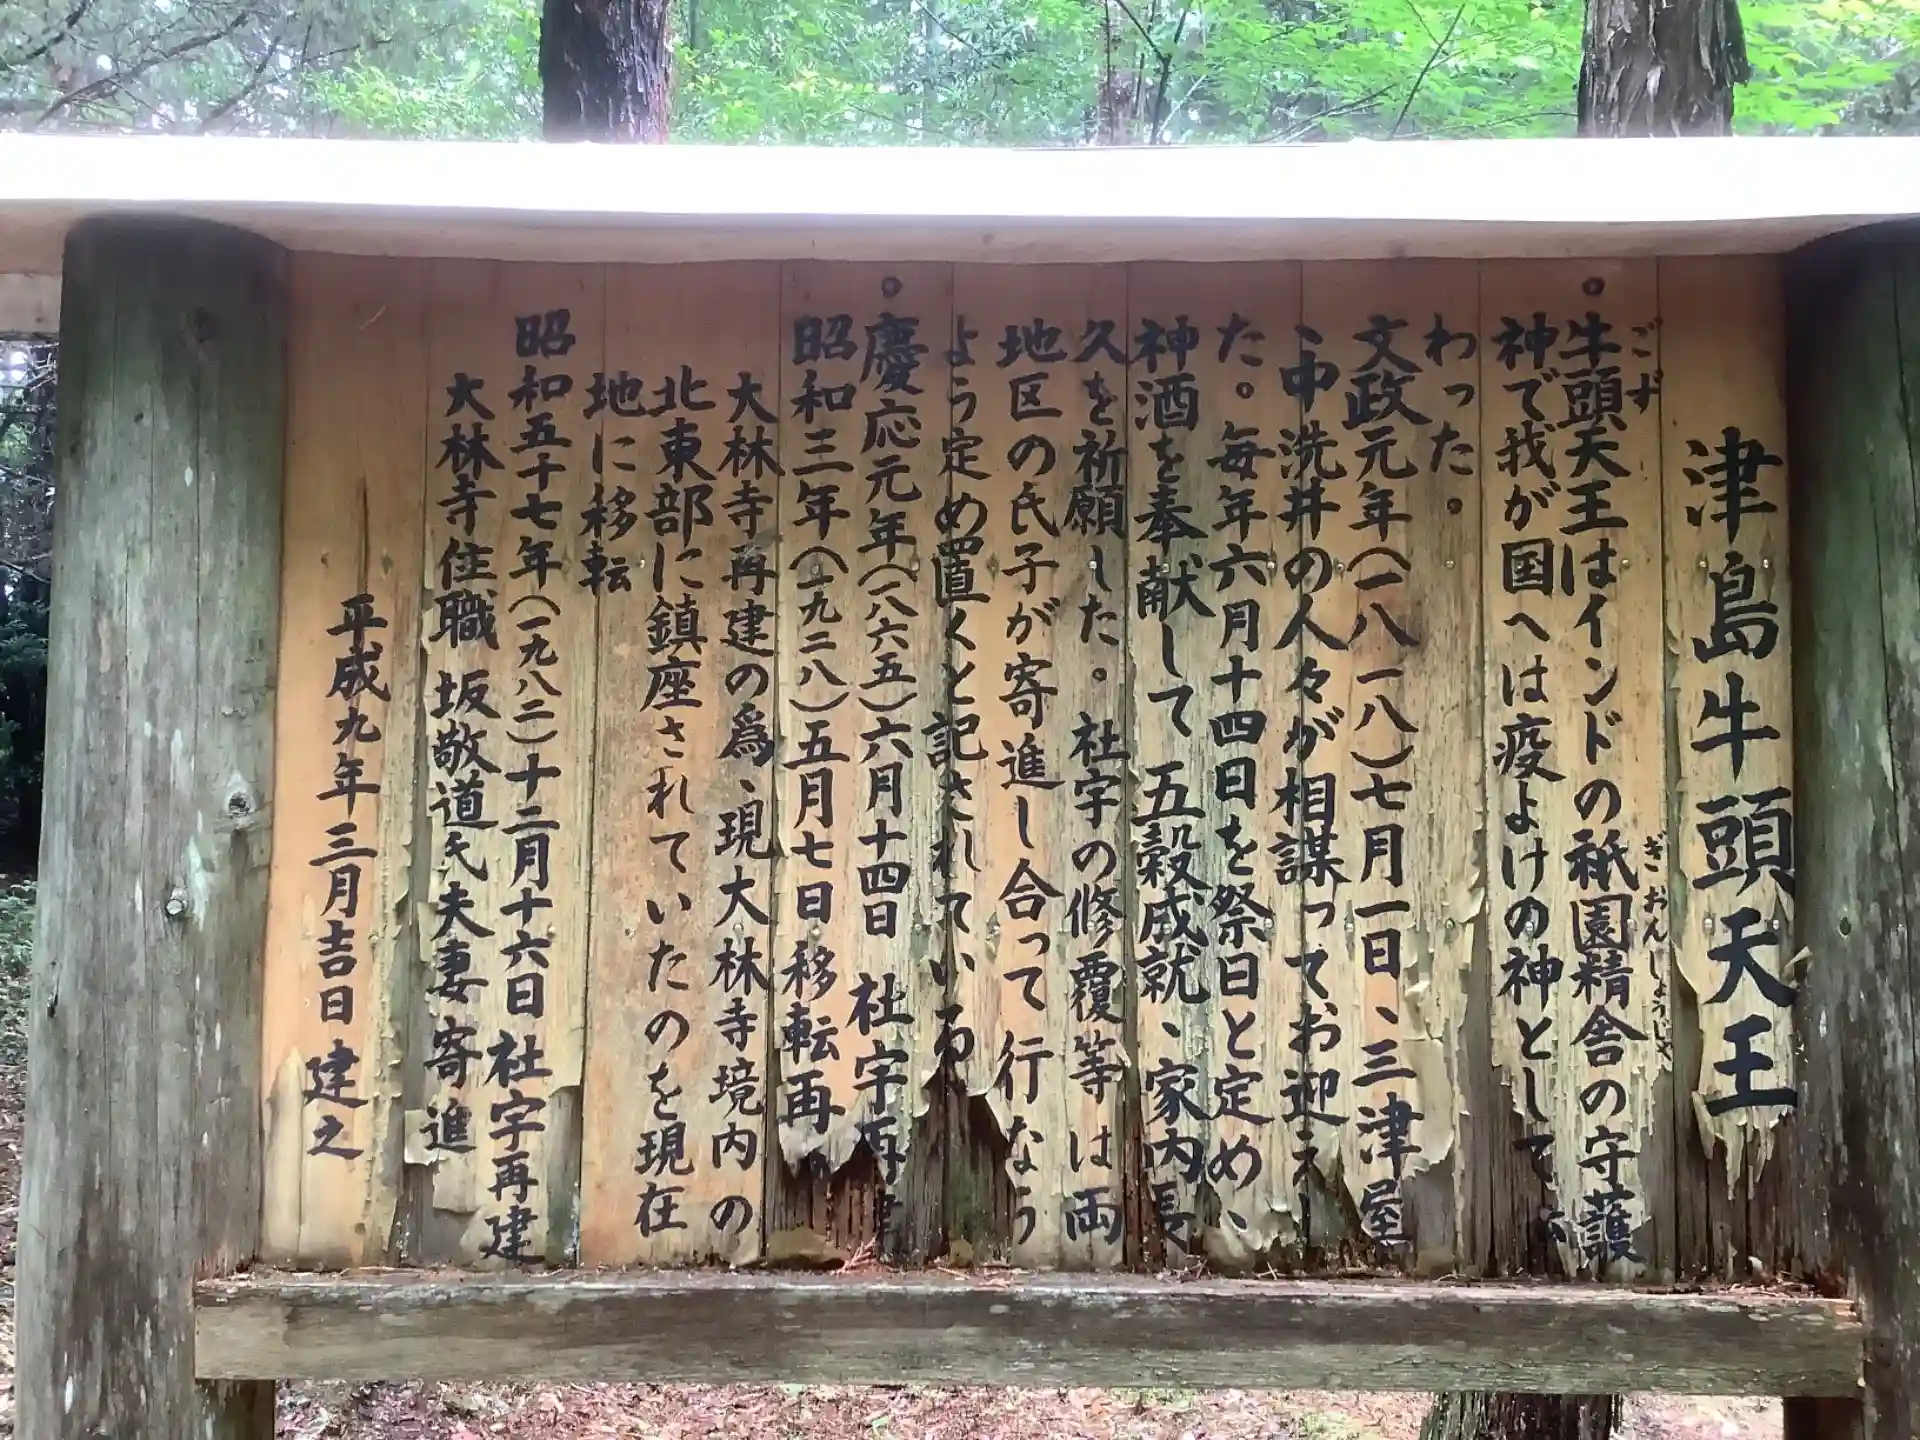 津島牛頭天王
。牛頭天王はインドの祇園精舎の守護
ごず
ぎおんしょうじゃ
神で我が国へは疫よけの神として
わった。
文政元年(一八一八)七月一日、三津屋
、中洗井の人々が相謀ってお迎えし
た。毎年六月十四日を祭日と定め、
神酒を奉献して五穀成就、家内長
久を祈願した。社宇の修覆等は両
地区の氏子が寄進し合って行なう
よう定め置くと記されている
。慶応元年(一八六五)六月十四日 社宇再建
昭和三年(一九二八)五月七日移転再
大林寺再建の爲、現大林寺境内の
北東部に鎮座されていたのを現在
地に移転
昭和五十七年(一九八二)十二月十六日 社宇再建
大林寺住職 坂敬道氏夫妻寄進
平成九年三月吉日 建之